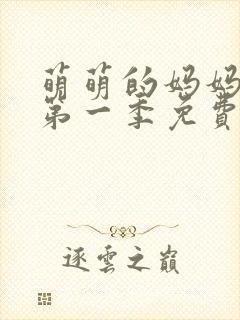 萌萌的妈妈
第一季免費
逐雲之巔